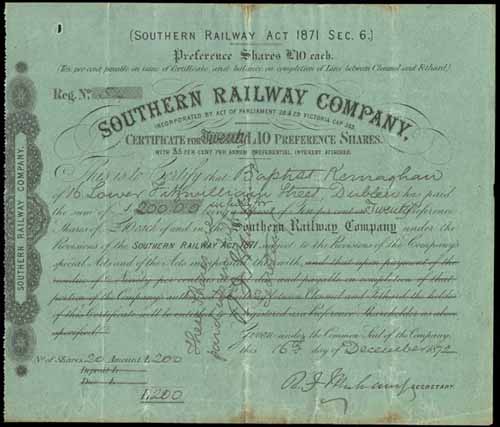 (SOUTHERN RAILWAY ACT 1871 SEC. 6.)
Preference Shares £10 each.
(Ten per cent payable on issue of Certificate, and balance on completion of Line between Clonmel and Fethard.)
Reg. No.
SOUTHERN RAILWAY COMPANY,
INCORPORATED BY ACT OF PARLIAMENT 28 & 29 VICTORIA CAP
CERTIFICATE FOR Twenty £10 PREFERENCE SHARES.
WITH PER CENT PER ANNUM PREFERENTIAL INTEREST ATTACHED.
This is to Certify that Baptist Kernaghan
of 16 Lower Fitzwilliam Street, Dublin has paid
the sum of £200.0.0 being of Ten per cent on Twenty Preference
Shares of £10 each of and in the Southern Railway Company under the
Provisions of the SOUTHERN RAILWAY ACT 1871 subject to the Provisions of the Company's
special Acts and of the Acts incorporated therewith, and that upon payment of the
of Ninety per cent and payable on completion of that
portion of the Company's between Clonmel and Fethard the holder
of this Certificate will be entitled to be registered as a Preference Shareholder as above
specified.
These Shares
paid
Given under the Common Seal of the Company,
this 16th day of December 1872
No. of Shares 20 Amount £200
Deposit £
Due £
£200
SECRETARY.
SOUTHERN RAILWAY COMPANY.